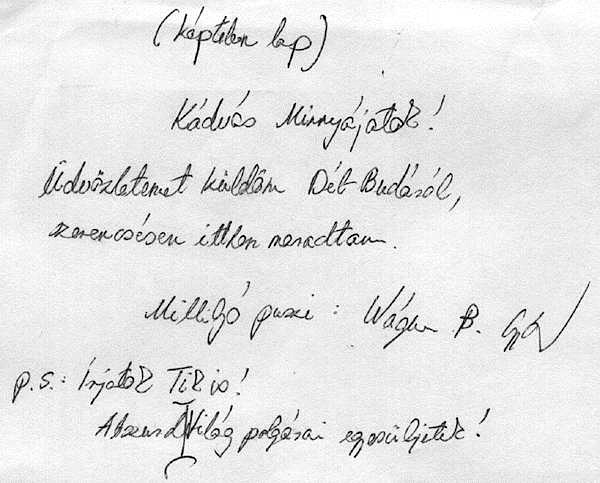 (képtelen lap)
Kádvás Mirnyájatok!
Üdvözletemet küldöm Dél-Budáról,
szerencsésen itthon maradtam.
puszi: Wágner B.
p.s.: Írjatok Ti is!
Abszurd Világ polgárai egyesüljetek!